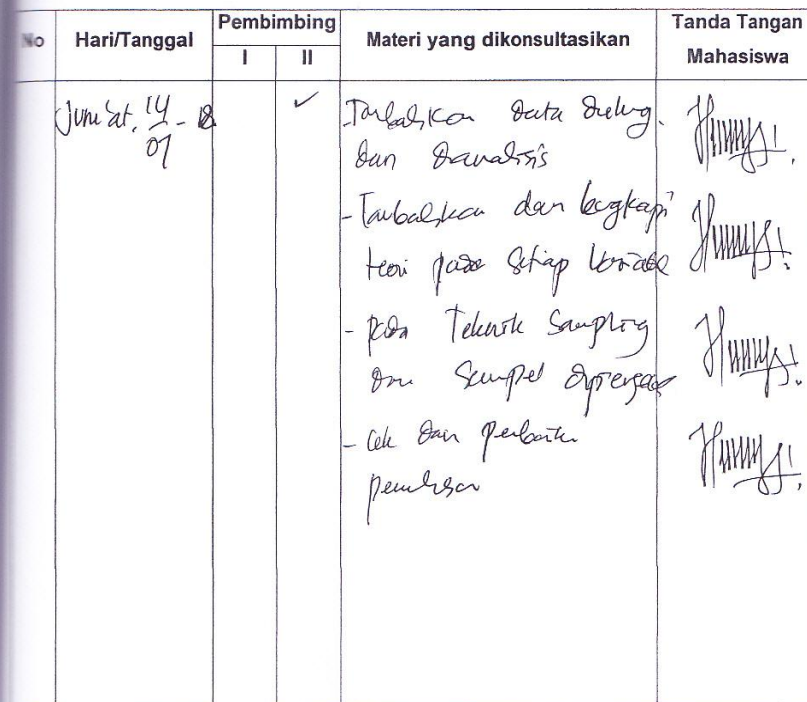 No Hari/Tanggal Pembimbing Materi yang dikonsultasikan Tanda Tangan
I II Mahasiswa
Jum'at, 14
07
dan dianalisis
- Tambahkan dan lengkapi
teori pada setiap Variabel
- pada Teknik Sampling
dan Sampel diperjelas
- Cek dan Perbaiki
penulisan